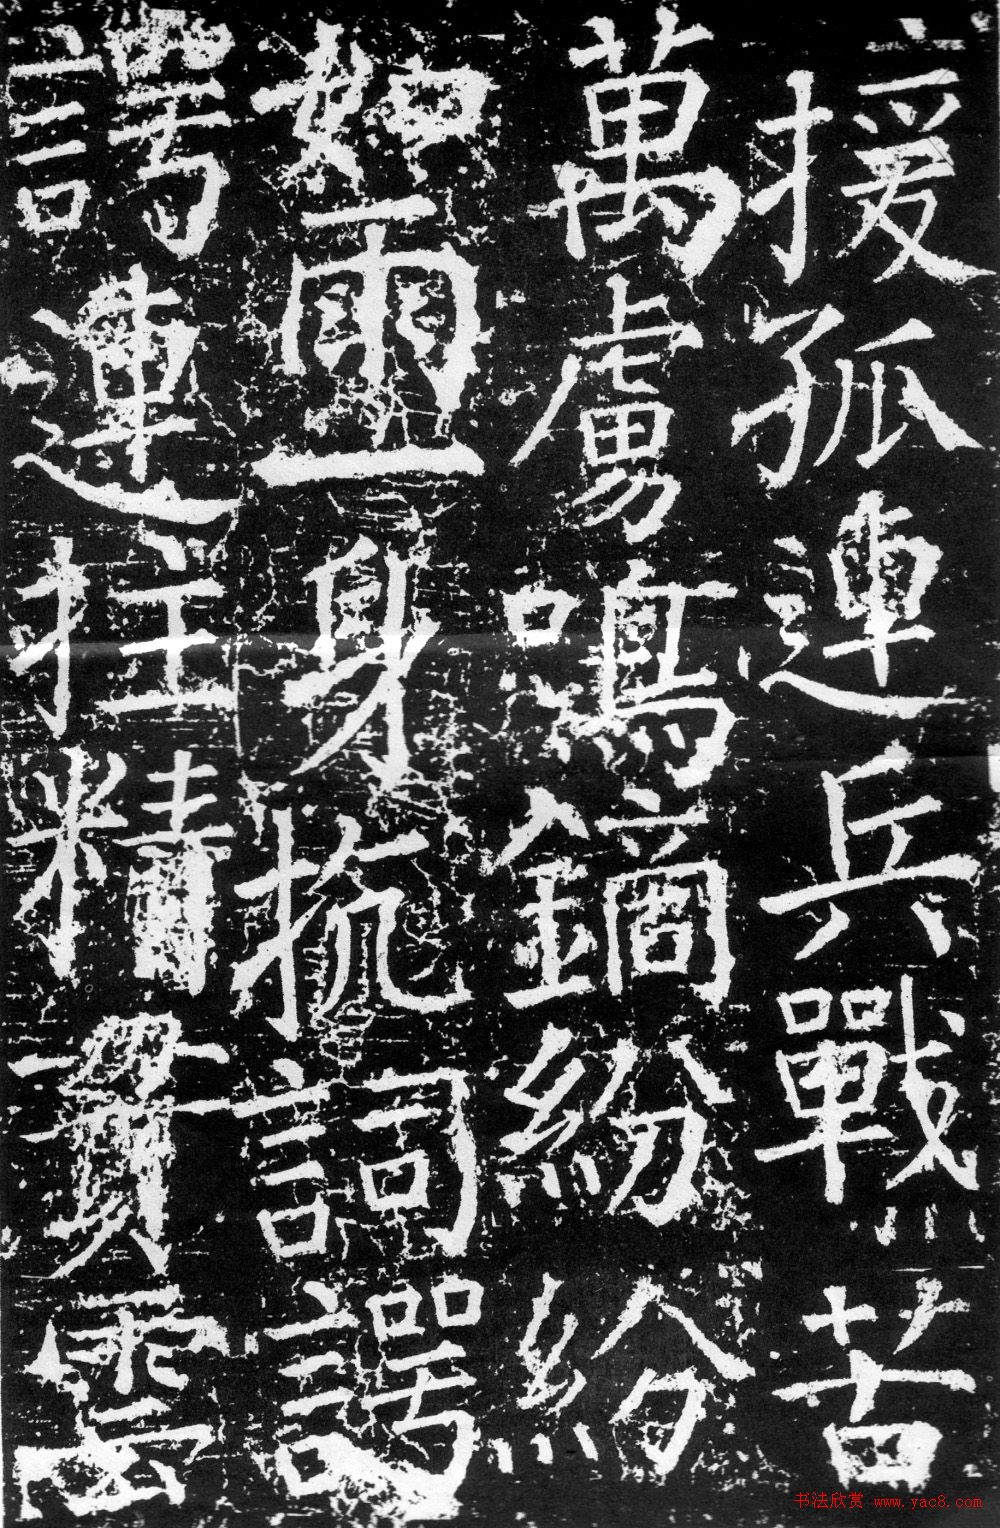 援孤連兵戰苦
萬虜鳴鏑紛紛
如雨一身抗詞諤
諤連拄精貫雲
书法欣赏 www.yac8.com